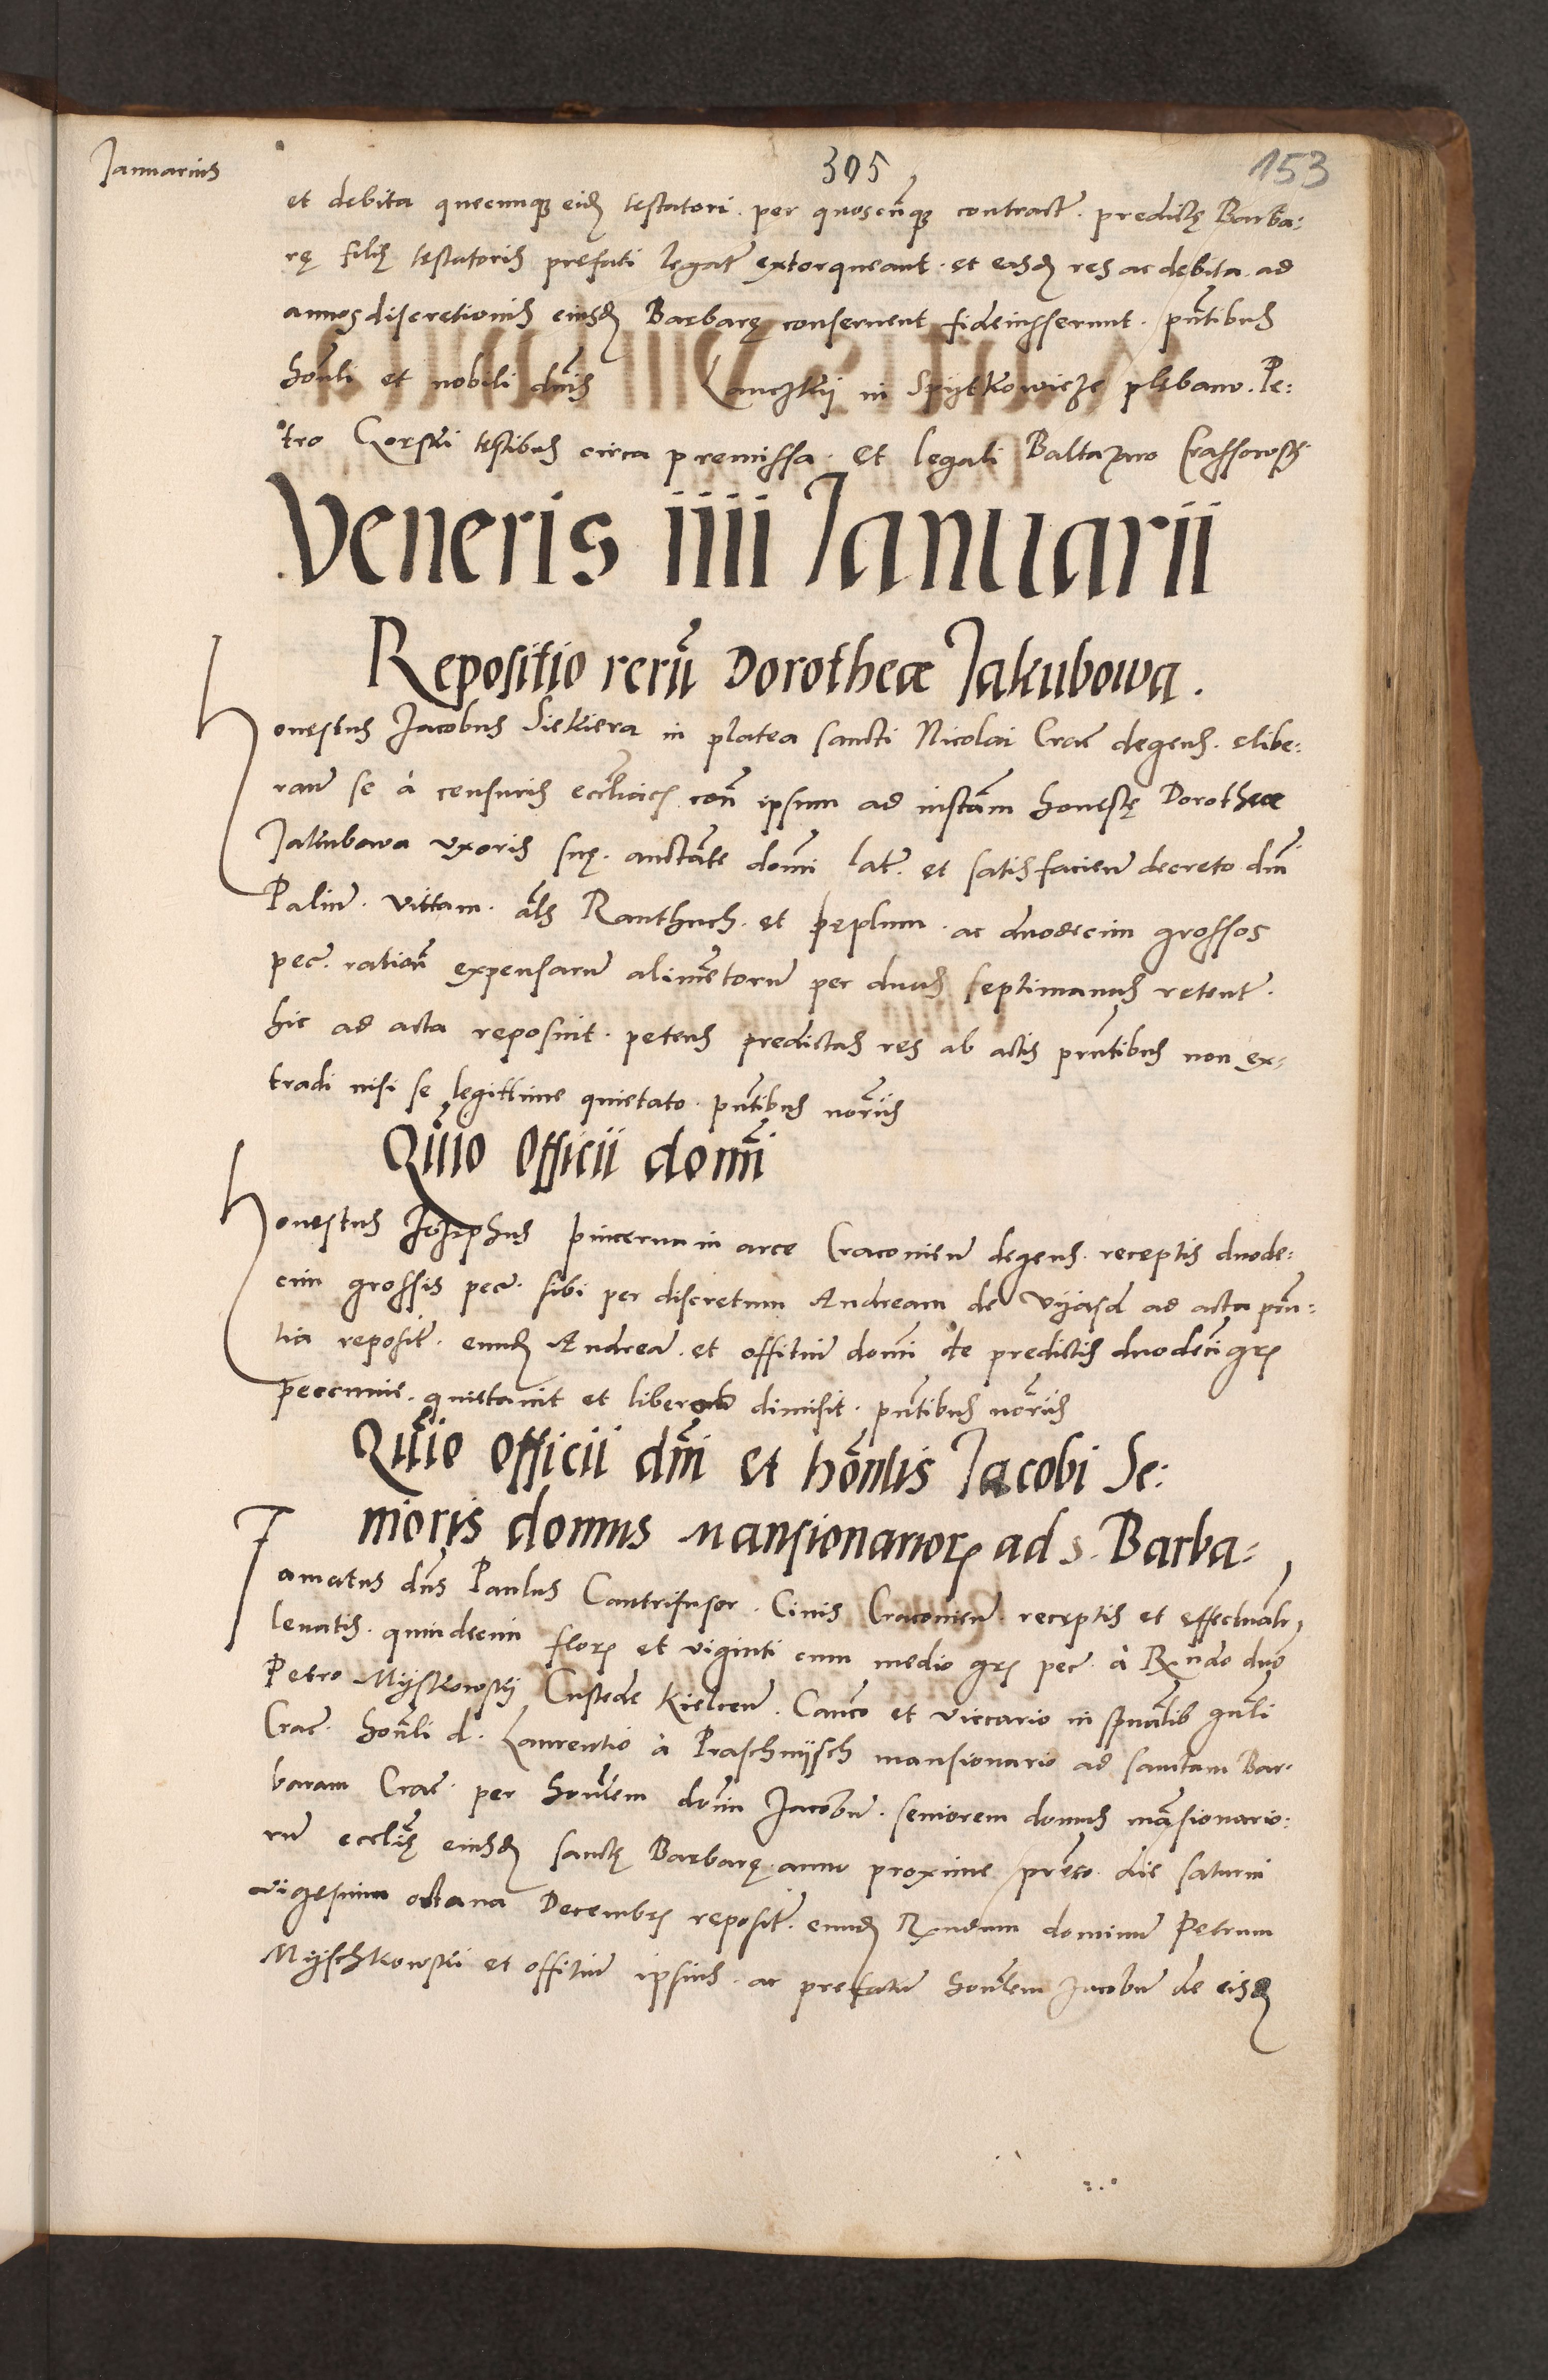 Januarius
305
153
et debita quecunq; eidẽ testatori . per quoscũq; contract̃ . predictę Barba:
rę filię testatoris prefati legat̃ extorqueant . et easdẽ res ac debita . ad
annos discretionis eiusdẽ Barbarę conseruent fideiusserunt . pñtibus
hoñli et nobili dñis Lanczkij in Spijtkowicze plebano . Pe:
tro Gorski testibus circa premissa . Et legali Baltazaro Crassowsky
Veneris iiii Ianuarii
Repositio rerũ Dorotheæ Jakubowa .
Honestus Jacobus Siekiera in platea sancti Nicolai Crac̃ degens . elibe:
rañ se à censuris eccl̃iacis con̄ ipsum ad instãm honestę Dorotheæ
Jakubowa vxoris suę . auctãte domĩ lat̃ . et satisfacieñ decreto dñi
Paliũ . vittam . al̃s Ranthuch . et peplum . ac duodecim grossos
pec̃ . rationẽ expensarũ alimẽtorũ per duas septimanas retent̃ .
hic ad acta reposuit . petens predictas res ab actis pñtibus non ex:
tradi nisi se legittime quietato . pñtibus norijs
Quĩo Officii domĩ
Honestus Josephus pincerna in arce Cracouieñ degens . receptis duode:
cim grossis pec̃ . sibi per discretum Andream de Vijasd ad acta pñ:
tia reposit̃ . eundẽ Andreã . et offitiũ domĩ de predictis duodecĩ grꝭ
pecunie . quietauit et liberos dimisit . pñtibus norijs
Quĩo Officii dñi et hoñlis Jacobi Se:
nioris domus Mansionariorꝫ ad s. Barba:
Famatus dñs Paulus Cantrifusor . Ciuis Cracouieñ . receptis et effectualr̃
leuatis . quindecim florꝭ et viginti cum medio grꝭ pec̃ . à R̃ndo dño
Petro Mijskowskij Custode Kielceñ . Canco et viccario in spũalib gñli
Crac̃ . hoñli d . Laurentio à Praschnijsch mansionario ad sanctam Bar:
baram Crac̃ . per hoñlem dom̃ Jacobũ . seniorem domus mãsionario:
rũ eccl̃ię eiusdẽ sanctę Barbarę . anno proxime p̃rito . die saturni
vigesima octaua Decembrꝭ reposit̃ . eundẽ R̃ndum dominũ Petrum
Mijschkowski et offitiũ ipsius . ac prefatũ hoñlem Jacobũ de eisdẽ